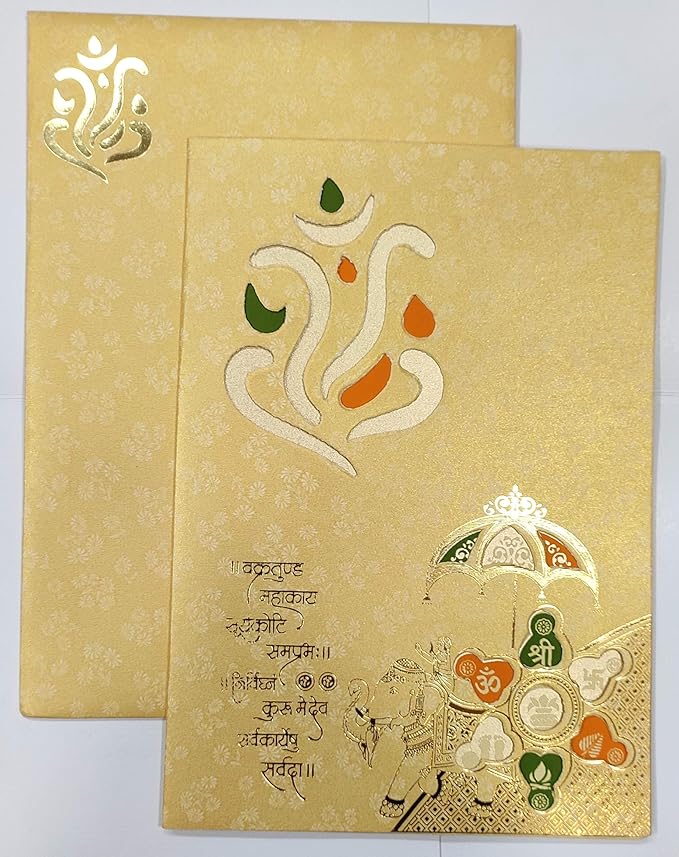 ॥ वक्रतुण्ड
महाकाय
सूर्यकोटि
समप्रभः॥
॥ निर्विघ्नं
कुरू मे देव
सर्वकार्येषु
सर्वदा॥
श्री
ॐ